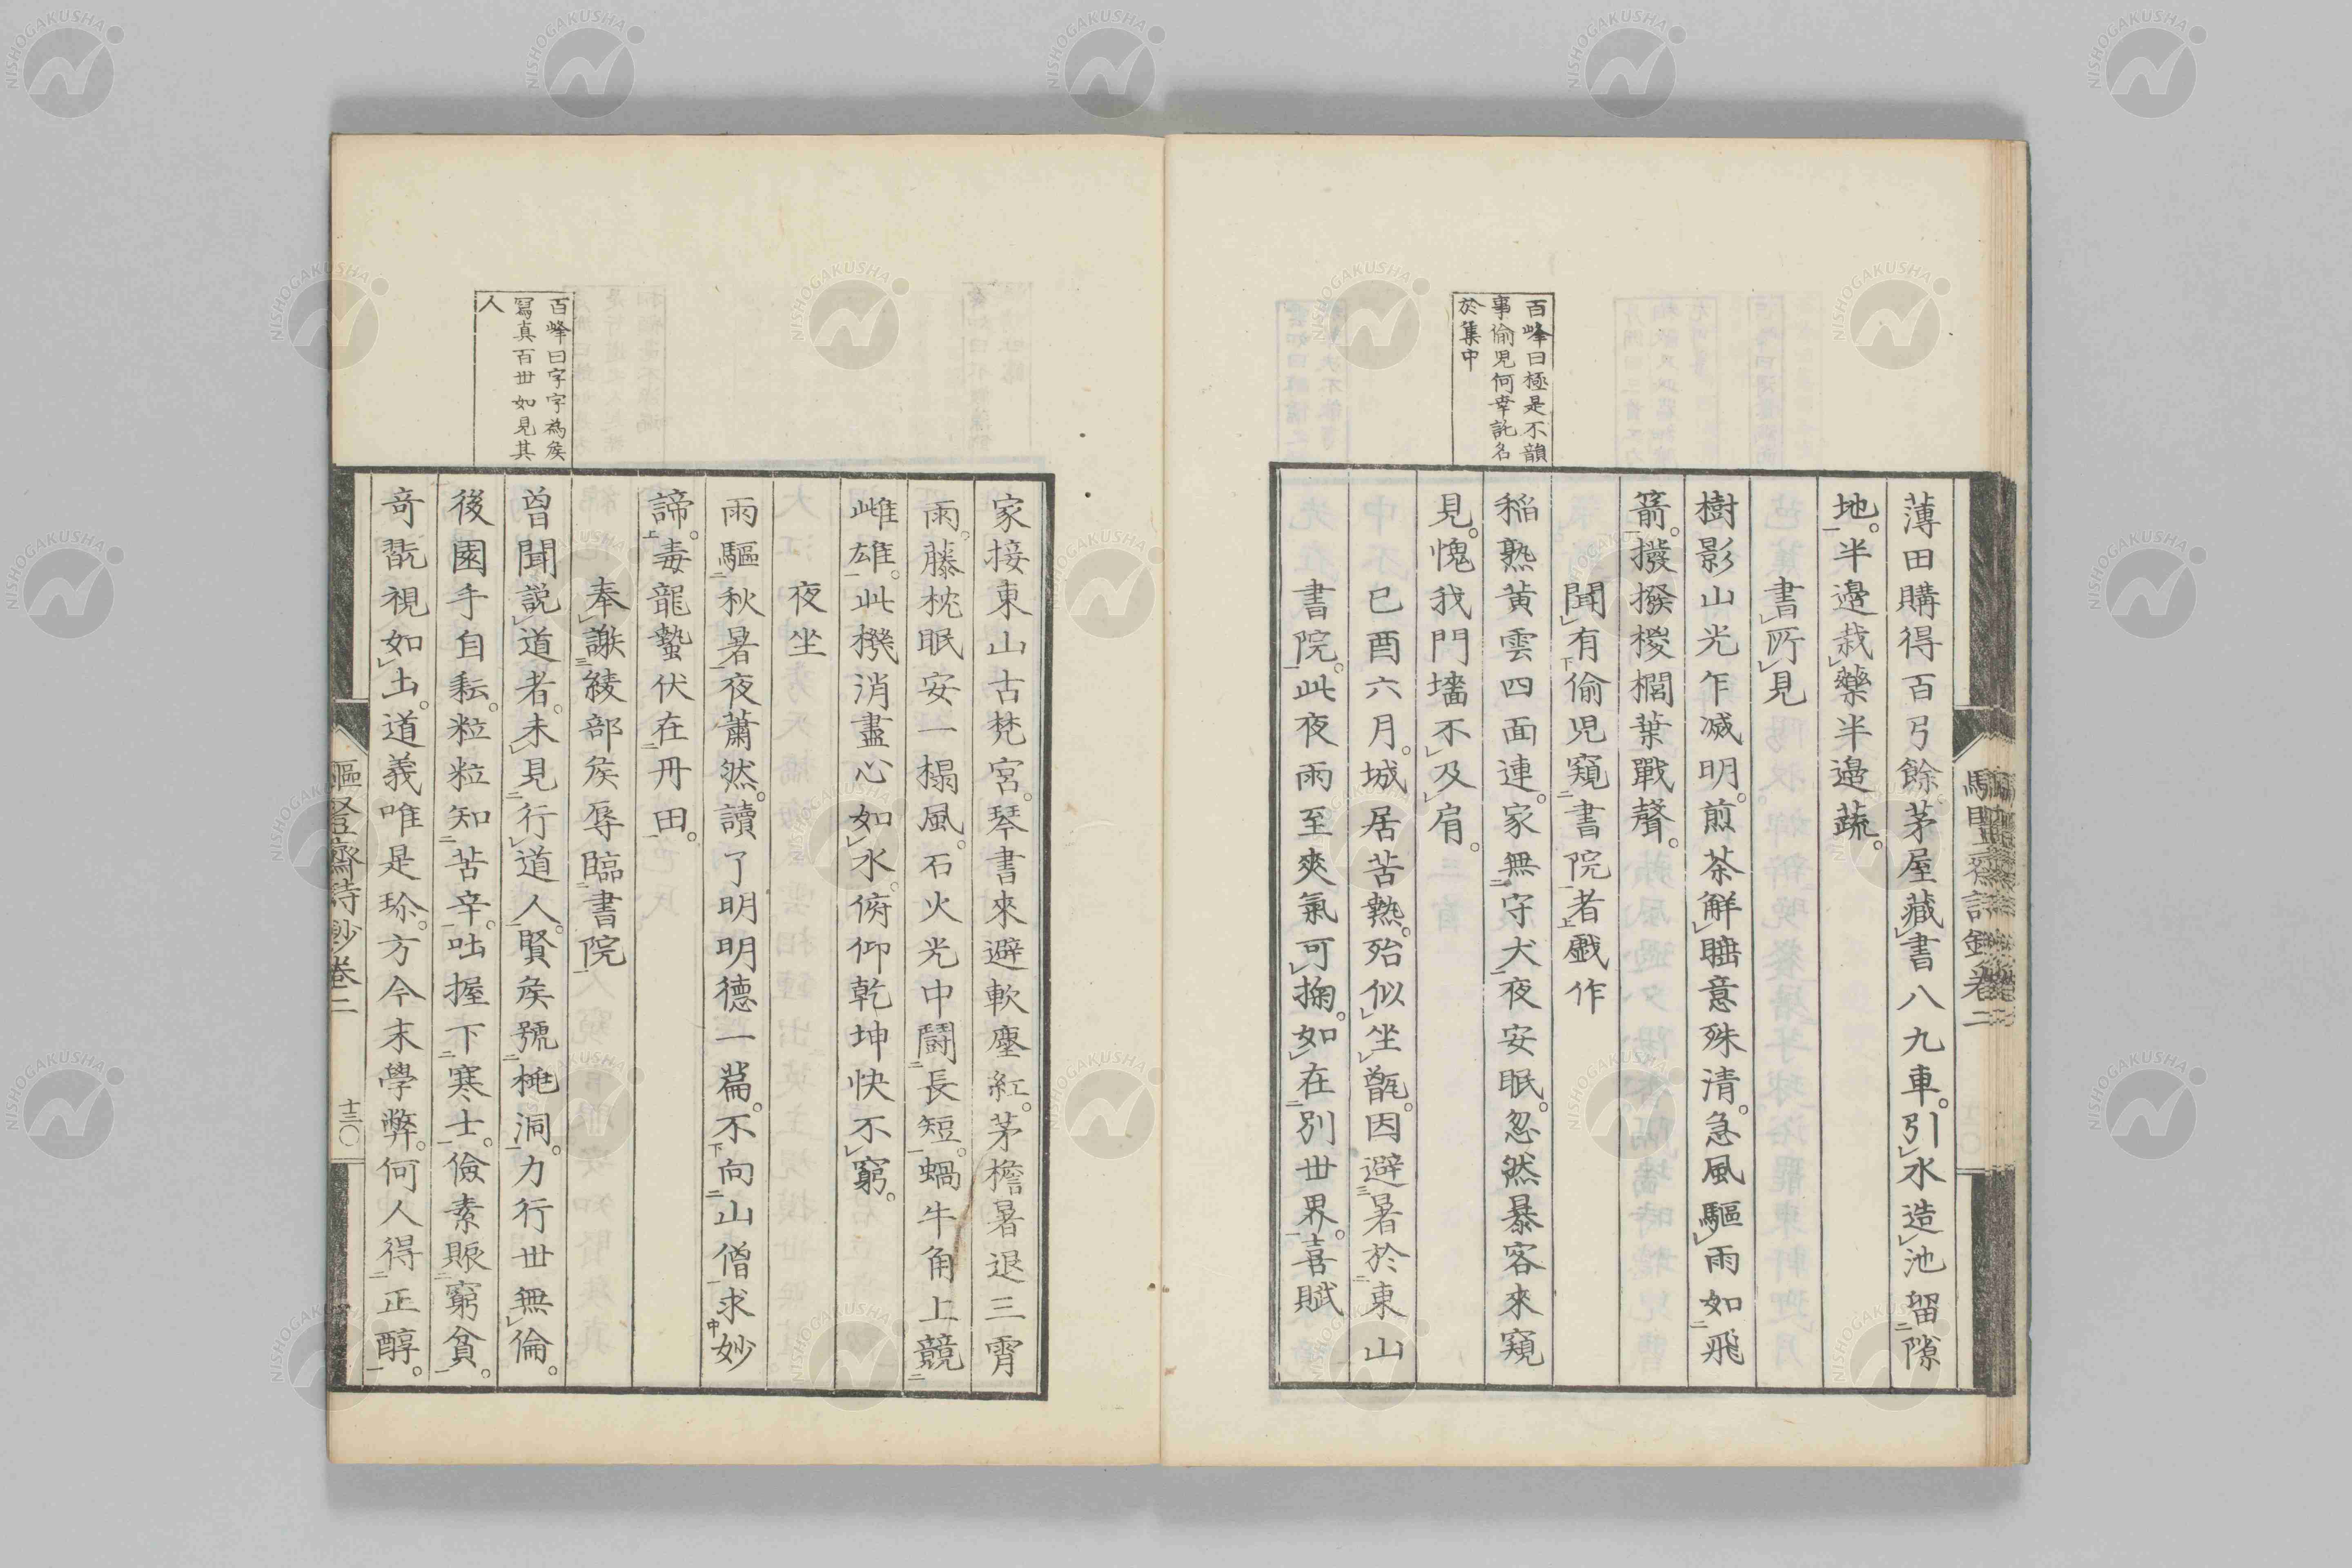 薄田購得百弓餘。茅屋藏書八九車。引水造池留隙
地。半邉栽藥半邉蔬。
書所見
樹影山光乍减明。煎茶解睡意殊清。急風驅雨如飛
箭。撥撥椶櫚葉戰聲。
聞有偷児窺書院者戯作
百峰曰極是不韻
事偷児何幸託名
於集中
稲熟黄雲四面連。家無守犬夜安眠。忽然暴客來窺
見。愧我門墻不及肩。
己酉六月。城居苦熱。殆似坐甑。因避暑於東山
書院。此夜雨至爽氣可掬。如在別丗界。喜賦
家接東山古梵宮。琴書來避軟塵紅。茅檐暑退三霄
雨。藤枕眠安一榻風。石火光中鬪長短。蝸牛角上競
雌雄。此機消盡心如水。俯仰乾坤快不窮。
夜坐
雨驅秋暑夜蕭然。讀了明明德一篇。不向山僧求妙
諦。毒龍蟄伏在丹田。
奉謝綾部矦辱臨書院
百峰曰字字為矦
寫真百丗如見其
人
曽聞説道者。未見行道人。賢矦號桃洞。力行丗無倫。
後園手自耘。粒粒知苦辛。吐握下寒士。儉素賑窮貧。
奇翫視如土。道義唯是珎。方今末學弊。何人得正醇。
驅豎齋詩鈔卷二
十三